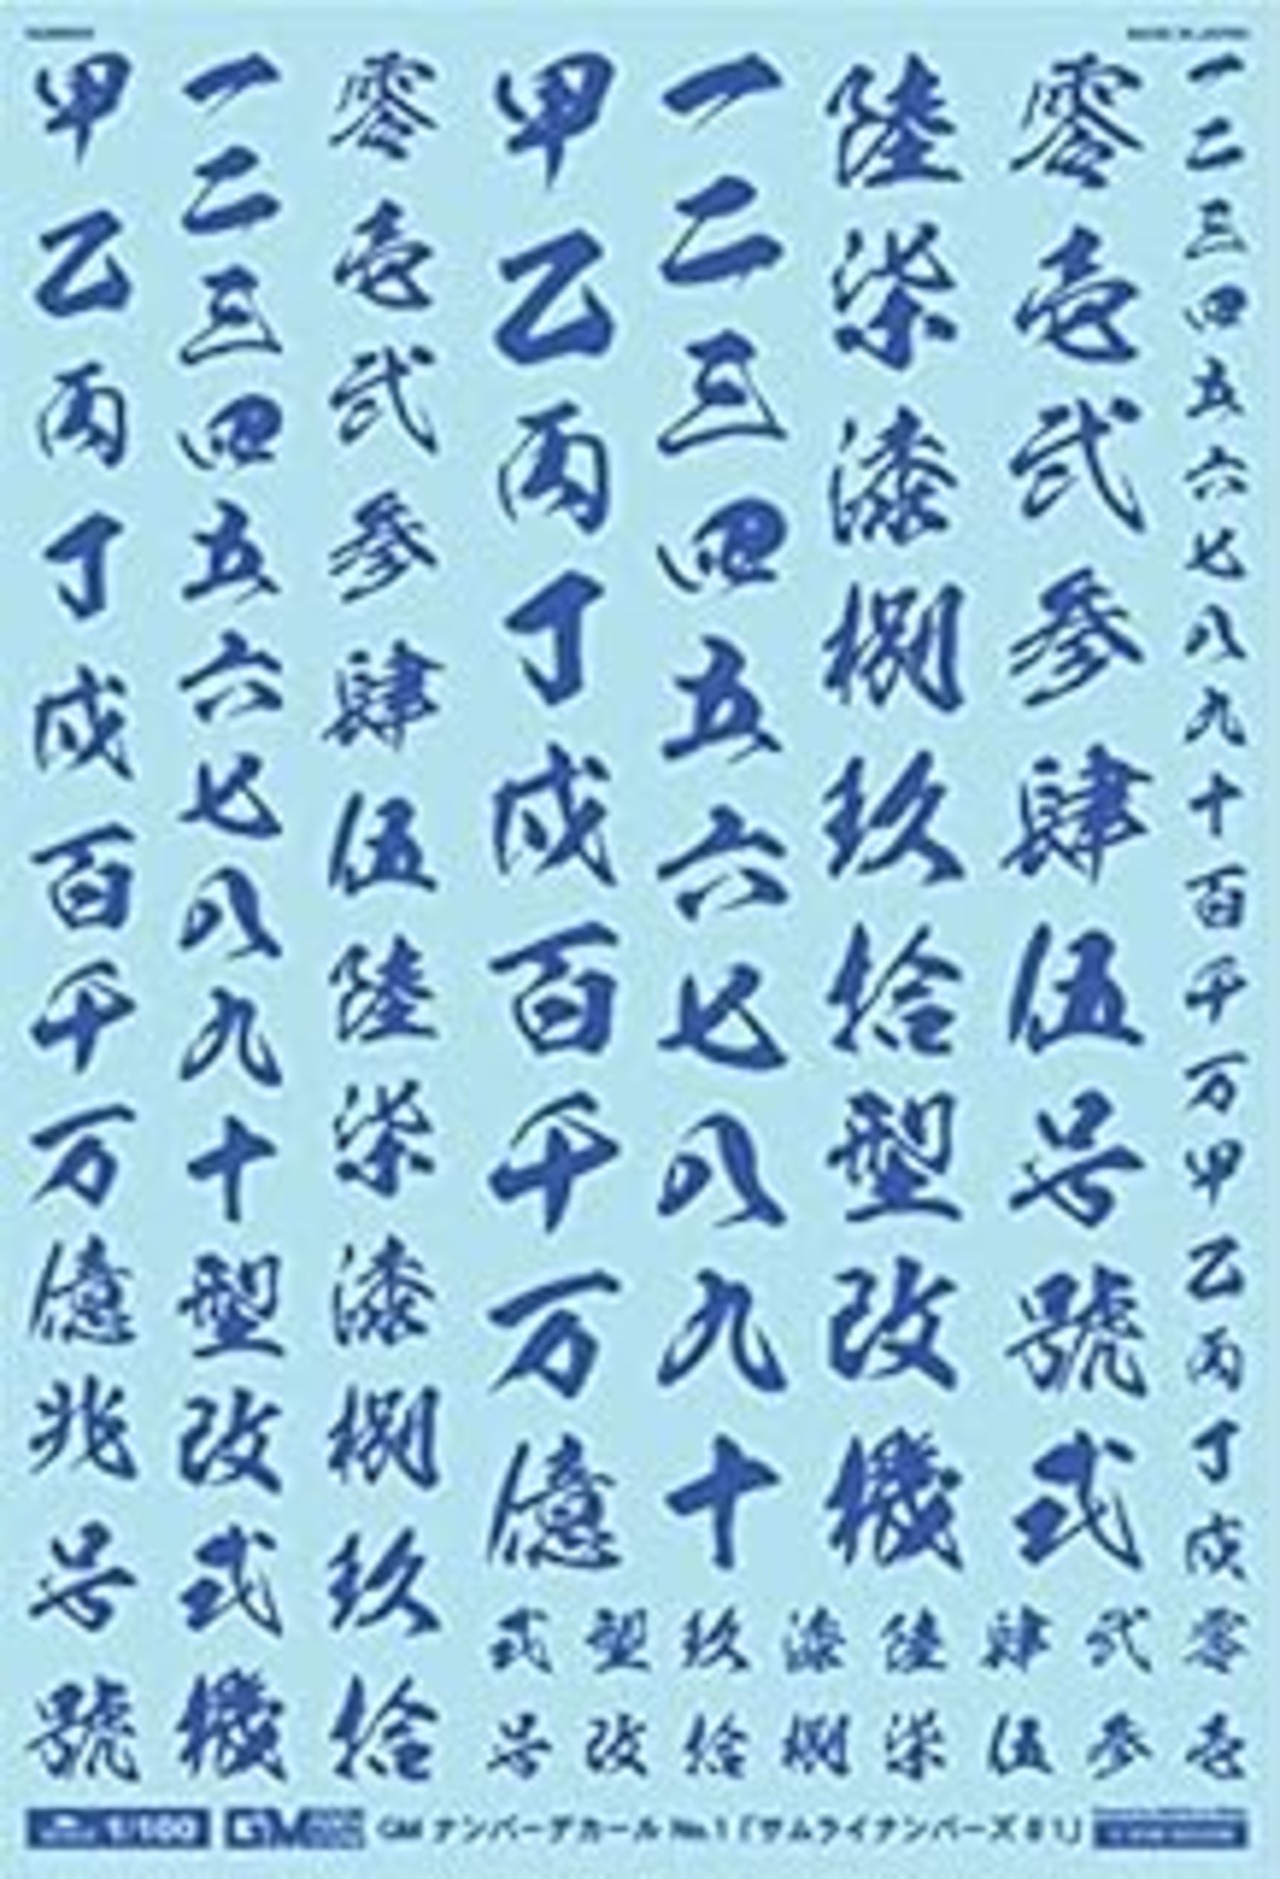 MADE IN JAPAN
一二三四五六七八九十百千万甲乙丙丁戊零壱
零壱弐参肆伍号號式
陸柒漆捌玖拾型改機
一二三四五六七八九十
甲乙丙丁戊百千万億
零壱弐参肆伍陸柒漆捌玖拾
一二三四五六七八九十型改式機
甲乙丙丁戊百千万億兆号號
弐参
肆伍
陸柒
漆捌
玖拾
型改
式号
1/100
GM
GM ナンバーデカール No.1「サムライナンバーズ 01」